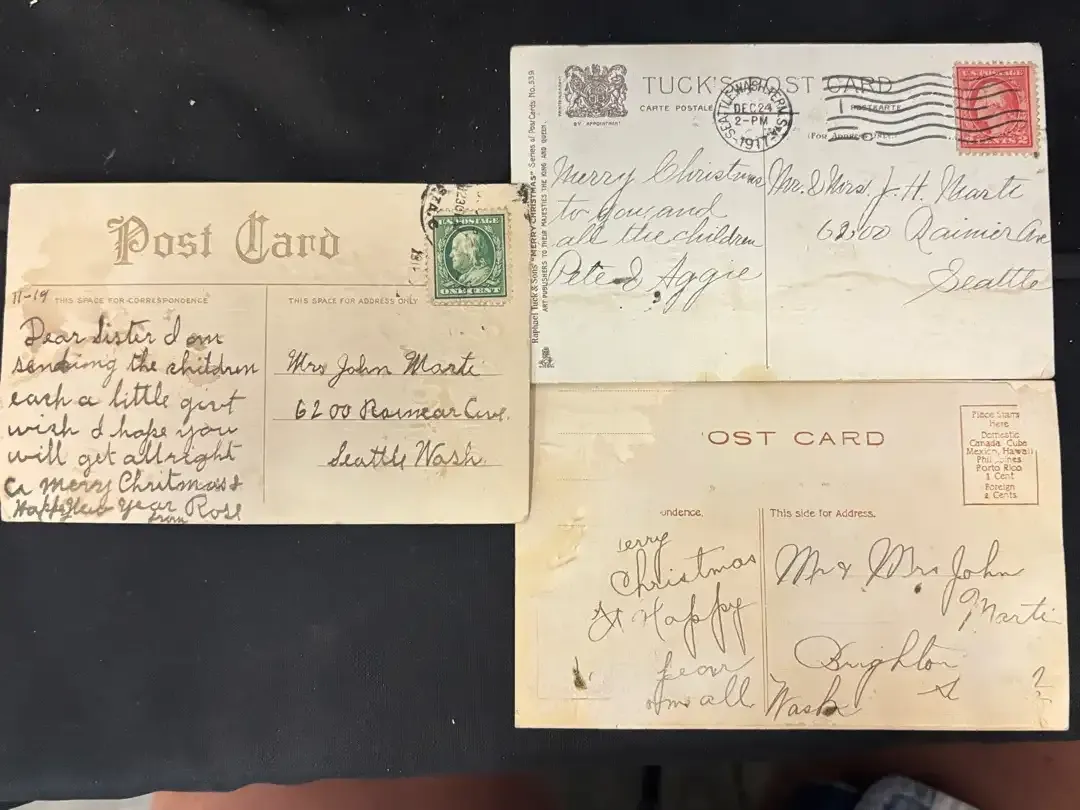 Post Card
11-19
THIS SPACE FOR CORRESPONDENCE
THIS SPACE FOR ADDRESS ONLY
U.S. POSTAGE
ONE CENT
Dear Sister I am
sending the children
each a little gift
wich I hope you
will get allright
a merry Chritmas &
Happy New Year
from Rose
Mrs John Marti
6200 Rainear Ave.
Seattle Wash.
TUCK'S POST CARD
CARTE POSTALE
POSTKARTE
BY APPOINTMENT
(For Address Only)
SEATTLE, WASH.
DEC 24
2-PM
1917
U.S. POSTAGE
2 CENTS 2
Raphael Tuck & Sons' "MERRY CHRISTMAS" Series of Post Cards No. 539
ART PUBLISHERS TO THEIR MAJESTIES THE KING AND QUEEN.
Merry Christmas
to you and
all the children
Pete & Aggie
Mr. & Mrs. J. H. Marti
6200 Rainier Ave
Seattle
OST CARD
Place Stamp
Here
Domestic
Canada, Cuba
Mexico, Hawaii
Philippines
Porto Rico
1 Cent
Foreign
2 Cents
ondence.
This side for Address.
erry
Christmas
& Happy
year
all
Mr & Mrs John
Marti
Brighton
Wash